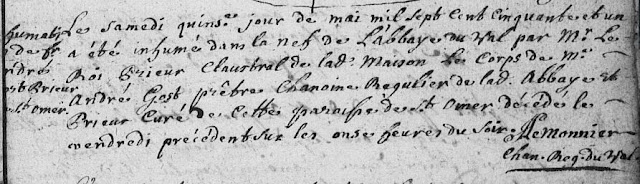 humatio Le samedi quinse jour de mai mil sept Cent Cinquante et un
de fr a été inhumé dans la nef de L'abbaye du Val par Mr. Le
ndré Roi Prieur Claustral de lad. Maison Le Corps de Mre
Prieur André Gost prêtre Chanoine Regulier de lad. Abbaye et
St. omer. Prieur Curé de Cette paroisse de St. Omer décédé le
vendredi précédent sur les onse heures du soir. J Lemonnier
Chan. Reg. du Val